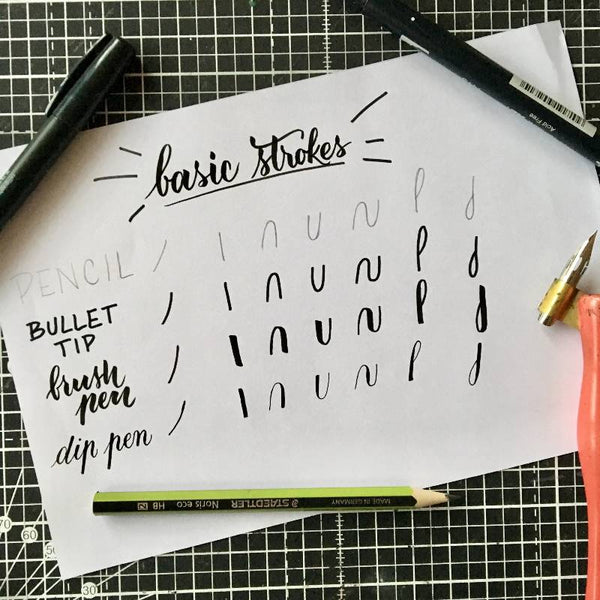 basic strokes
PENCIL
BULLET
TIP
brush
pen
dip pen
MADE IN GERMANY
STAEDTLER
Noris eco HB 2
Acid Free
70
60
50
30